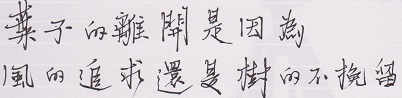 葉子的離開是因為
風的追求還是樹的不挽留